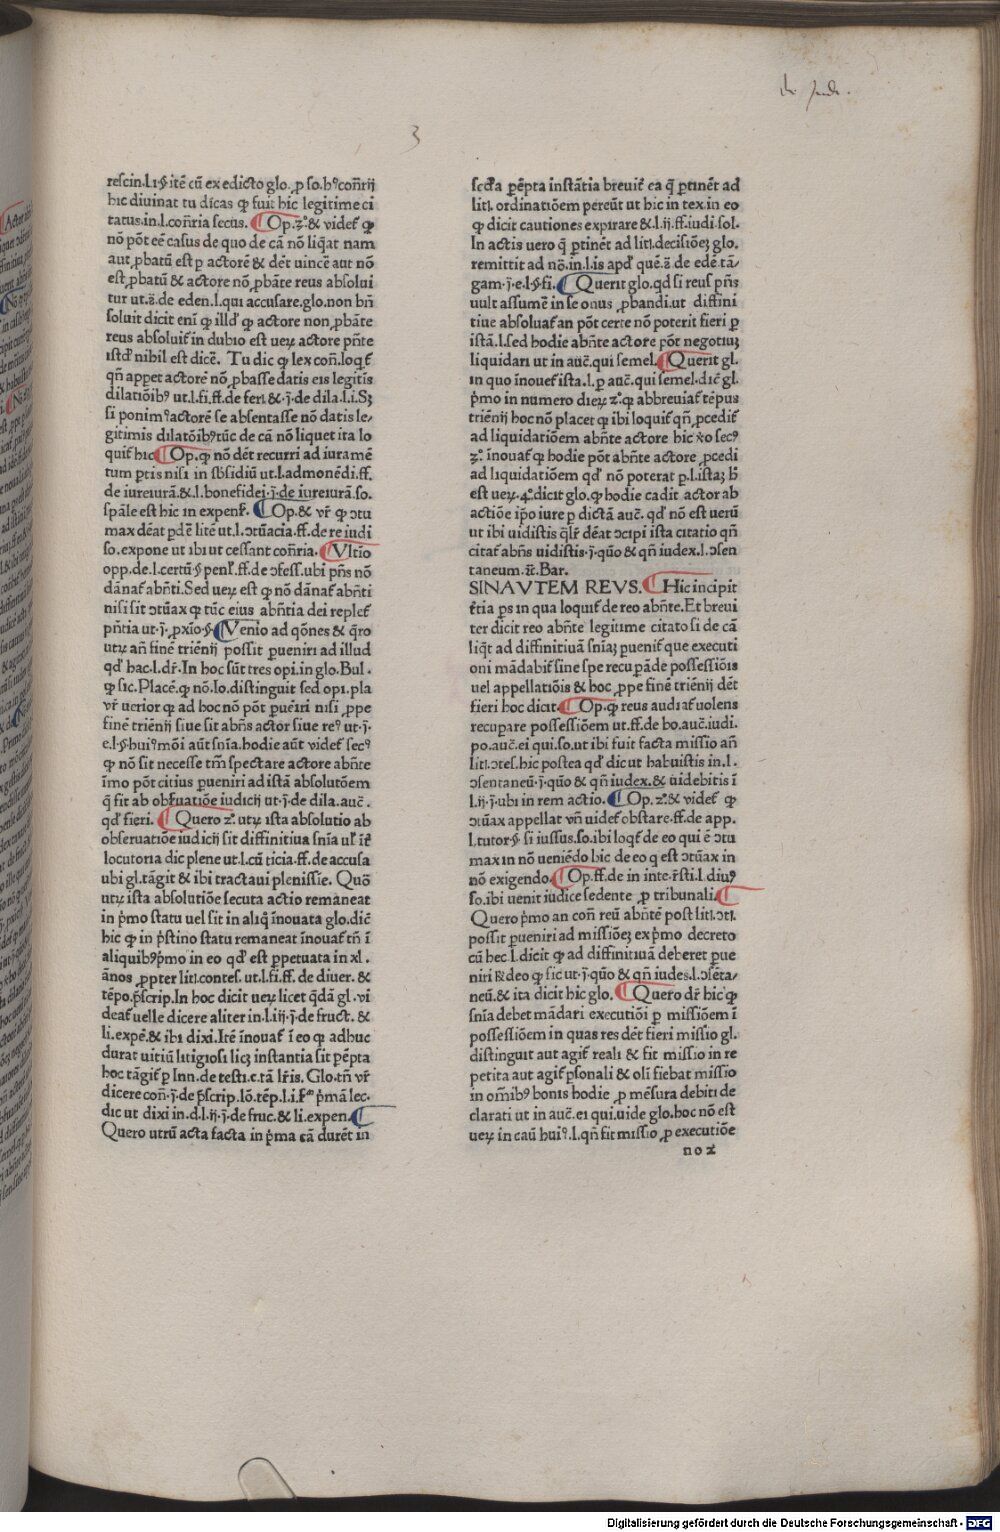 de iudi.
3
rescin.l.i.§ itē cū ex edicto glo. ꝓ so. hꝰ cōn̄rij
hic diuinat tu dicas ꝙ fuit hic legitime ci
tatus.in.l.con̄ria secus. Op.2°.& videt̉ ꝙ
nō pōt eē casus de quo de cā nō liq̄at nam
aut ꝓbatū est p actorē & dēt uincē aut nō
est ꝓbatū & actore nō ꝓbāte reus absolui
tur ut.s̄.de eden.l.qui accusare.glo.non bn̄
soluit dicit enī ꝙ illd̓ ꝙ actore non ꝓbāte
reus absoluit̉ in dubio est ueꝝ actore pn̄te
istd̓ nihil est dicē. Tu dic ꝙ lex con̄.loqt̉
qn̄ appet actorē nō ꝓbasse datis eis legitīs
dilatiōibꝰ ut.l.fi.ff.de feri.&.j.de dila.l.i.Sꝫ
si ponimꝰ actorē se absentasse nō datis le⸗
gitimis dilatōibꝰ tūc de cā nō liquet ita lo
quit̉ hic Op.ꝙ nō dēt recurri ad iuramē
tum ptis nisi in sbsidiū ut.l.admonēdi.ff.
de iureiurā.&.l.bonefidei.j.de iureiurā.so.
spāle est hic in expen̄. Op.& vr̄ ꝙ ↄtu
max dēat pdē litē ut.l.ↄtūacia.ff.de re iudi
so.expone ut ibi ut cessant con̄ria. Vltīo
opp.de.l.certū.§ penl̓.ff.de ↄfess.ubi pn̄s nō
dānat̉ abn̄ti.Sed ueꝝ est ꝙ nō dānat̉ abn̄ti
nisi sit ↄtūax ꝙ tūc eius abn̄tia dei replet̉
pn̄tia ut.j.ꝓxīo.§. Venio ad q̄ōnes & q̄ro
utꝝ an̄ finē triēnij possit pueniri ad illud
qd̓ hac.l.dr̄.In hoc sūt tres opi.in glo.Bul.
ꝙ sic.Placē.ꝙ nō.Io.distinguit sed opi.pla
vr̄ uerior ꝙ ad hoc nō pōt puēiri nisi ꝓpe
finē triēnij siue sit abn̄s actor siue reꝰ ut.j.
e.l.§ huiꝰmōi aūt sn̄ia.hodie aūt videt̉ secꝰ
ꝙ nō sit necesse tm̄ spectare actore abn̄te
īmo pōt citius pueniri ad istā absolutōem
q̄ fit ab obsuatiōe iudicij ut.j.de dila.auc̄.
qd̓ fieri. Quero 2°.utꝝ ista absolutio ab
obseruatiōe iudicij sit diffinitiua sn̄ia ul̓ īt̄
locutoria dic plene ut.l.cū ticia.ff.de accusa
ubi gl.tāgit & ibi tractaui plenissie. Quō
utꝝ ista absolutiōe secuta actio remaneat
in p̄mo statu uel sit in aliq̄ īnouata glo.dic̄
hic ꝙ in p̄stino statu remaneat īnouat̉ tn̄ ī
aliquibꝰ p̄mo in eo qd̓ est ppetuata in xl.
ānos ꝓpter liti.contes.ut.l.fi.ff.de diuer.&
tēpo.p̄scrip.In hoc dicit ueꝝ licet q̄dā gl.vi
deat̉ uelle dicere aliter in.l.iij.j.de fruct.&
li.expē.& ibi dixi.Itē īnouat̉ ī eo ꝙ adhuc
durat uitiū litigiosi licꝫ instantia sit pēpta
hoc tāgit̉ p Inn.de testi.c.tā lr̄is. Glo.tn̄ vr̄
dicere con̄.j.de p̄scrip.lō.tēp.l.i. p̄mā lec.
dic ut dixi in.d.l.ij.j.de fruc.& li.expen.
Quero utrū acta facta in p̄ma cā durēt in
scd̓a pēpta instātia breuit̉ ea q̄ ptinēt ad
liti.ordinatiōem pereūt ut hic in tex.in eo
ꝙ dicit cautiones expirare &.l.ij.ff.iudi.sol.
In actis uero q̄ ptinēt ad liti.decisiōeꝫ glo.
remittit ad nō.in.l.is apd̓ quē.s̄.de edē.tā⸗
gam.j.e.l.§.fi. Querit glo.qd̓ si reus pn̄s
uult assumē in se onus ꝓbandi.ut diffini
tiue absoluat̉ an pōt certe nō poterit fieri p
istā.l.sed hodie abn̄te actore pōt negotiuꝫ
liquidari ut in auc̄.qui semel. Querit gl.
in quo īnouet̉ ista.l.p auc̄.qui semel.dic̄ gl.
p̄mo in numero dieꝝ 2°.ꝙ abbreuiat̉ tēpus
triēnij hoc nō placet ꝙ ibi loquit̉ qn̄ ꝓcedit̉
ad liquidatiōem abn̄te actore hic v̄o secꝰ
3°.īnouat̉ ꝙ hodie pōt abn̄te actore ꝓcedi
ad liquidatiōem qd̓ nō poterat p.l.istaꝫ h̄
est ueꝝ.4°.dicit glo.ꝙ hodie cadit actor ab
actiōe ip̄o iure p dictā auc̄.qd̓ nō est uerū
ut ibi uidistis q̄lr̄ dēat ↄcipi ista citatio qn̄
citat̉ abn̄s uidistis.j.q̄uō & qn̄ iudex.l.ↄsen
taneum.⁊c̄.Bar.
SINAVTEM REVS. Hic incipit
t̄tia ps in qua loquit̉ de reo abn̄te.Et breui
ter dicit reo abn̄te legitime citato si de cā
liq̄t ad diffinitiuā sn̄iaꝫ puenit̉ que executi
oni mādabit̉ sine spe recupāde possessiōis
uel appellatiōis & hoc ꝓpe finē triēnij dēt
fieri hoc dicit. Op.ꝙ reus audiat̉ uolens
recupare possessiōem ut.ff.de bo.auc̄.iudi.
po.auc̄.ei qui.so.ut ibi fuit facta missio an̄
liti.ↄtes.hic postea qd̓ dic ut habuistis in.l.
ↄsentaneū.j.q̄uō & qn̄ iudex.& uidebitis ī
l.ij.j.ubi in rem actio. Op.2°.& videt̉ ꝙ
ↄtūax appellat vn̄ uidet̉ obstare.ff.de app.
l.tutor.§ si iussus.so.ibi loqt̉ de eo qui ē ↄtu
max in nō ueniēdo hic de eo q est ↄtūax in
nō exigendo. Op.ff.de in inte.r̄sti.l.diuꝰ
so.ibi uenit iudice sedente ꝓ tribunali.
Quero p̄mo an con̄ reū abn̄tē post liti.ↄtī.
possit pueniri ad missiōeꝫ ex p̄mo decreto
cū hec.l.dicit ꝙ ad diffinitiuā deberet pue
niri Rn̄deo ꝙ sic ut.j.q̄uō & qn̄ iudes.l.ↄsēta⸗
neū.& ita dicit hic glo. Quero dr̄ hic ꝙ
sn̄ia debet mādari executiōi p missiōem ī
possessiōem in quas res dēt fieri missio gl.
distinguit aut agit̉ reali & fit missio in re
petita aut agit̉ psonali & oli fiebat missio
in om̄ibꝰ bonis hodie ꝓ mēsura debiti de
clarati ut in auc̄.ei qui.uide glo.hoc nō est
ueꝝ in caū huiꝰ.l.qn̄ fit missio ꝓ executiōe
noꝝ
Digitalisierung gefördert durch die Deutsche Forschungsgemeinschaft - DFG